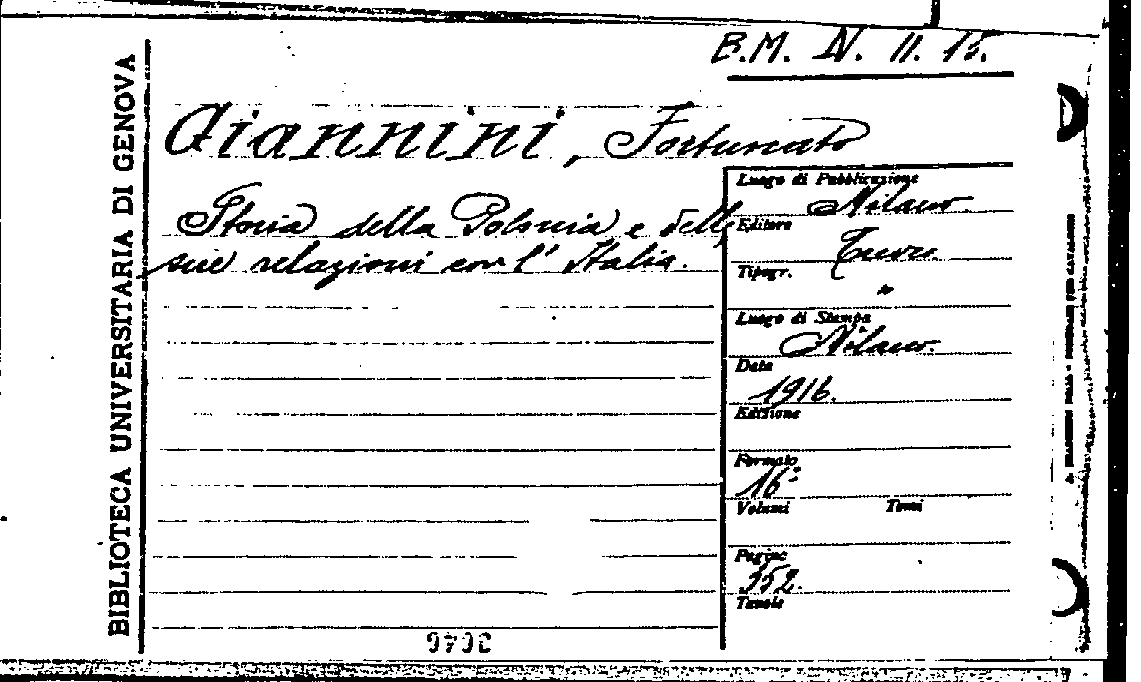 B.M. IV. 11. 15.
BIBLIOTECA UNIVERSITARIA DI GENOVA
Giannini, Fortunato
Storia della Polonia e delle
sue relazioni con l'Italia.
Luogo di Pubblicazione
Milano.
Editore
Treves.
Tipogr.
"
Luogo di Stampa
Milano.
Data
1916.
Edizione
Formato
16°
Volumi Tomi
Pagine
352.
Tavole